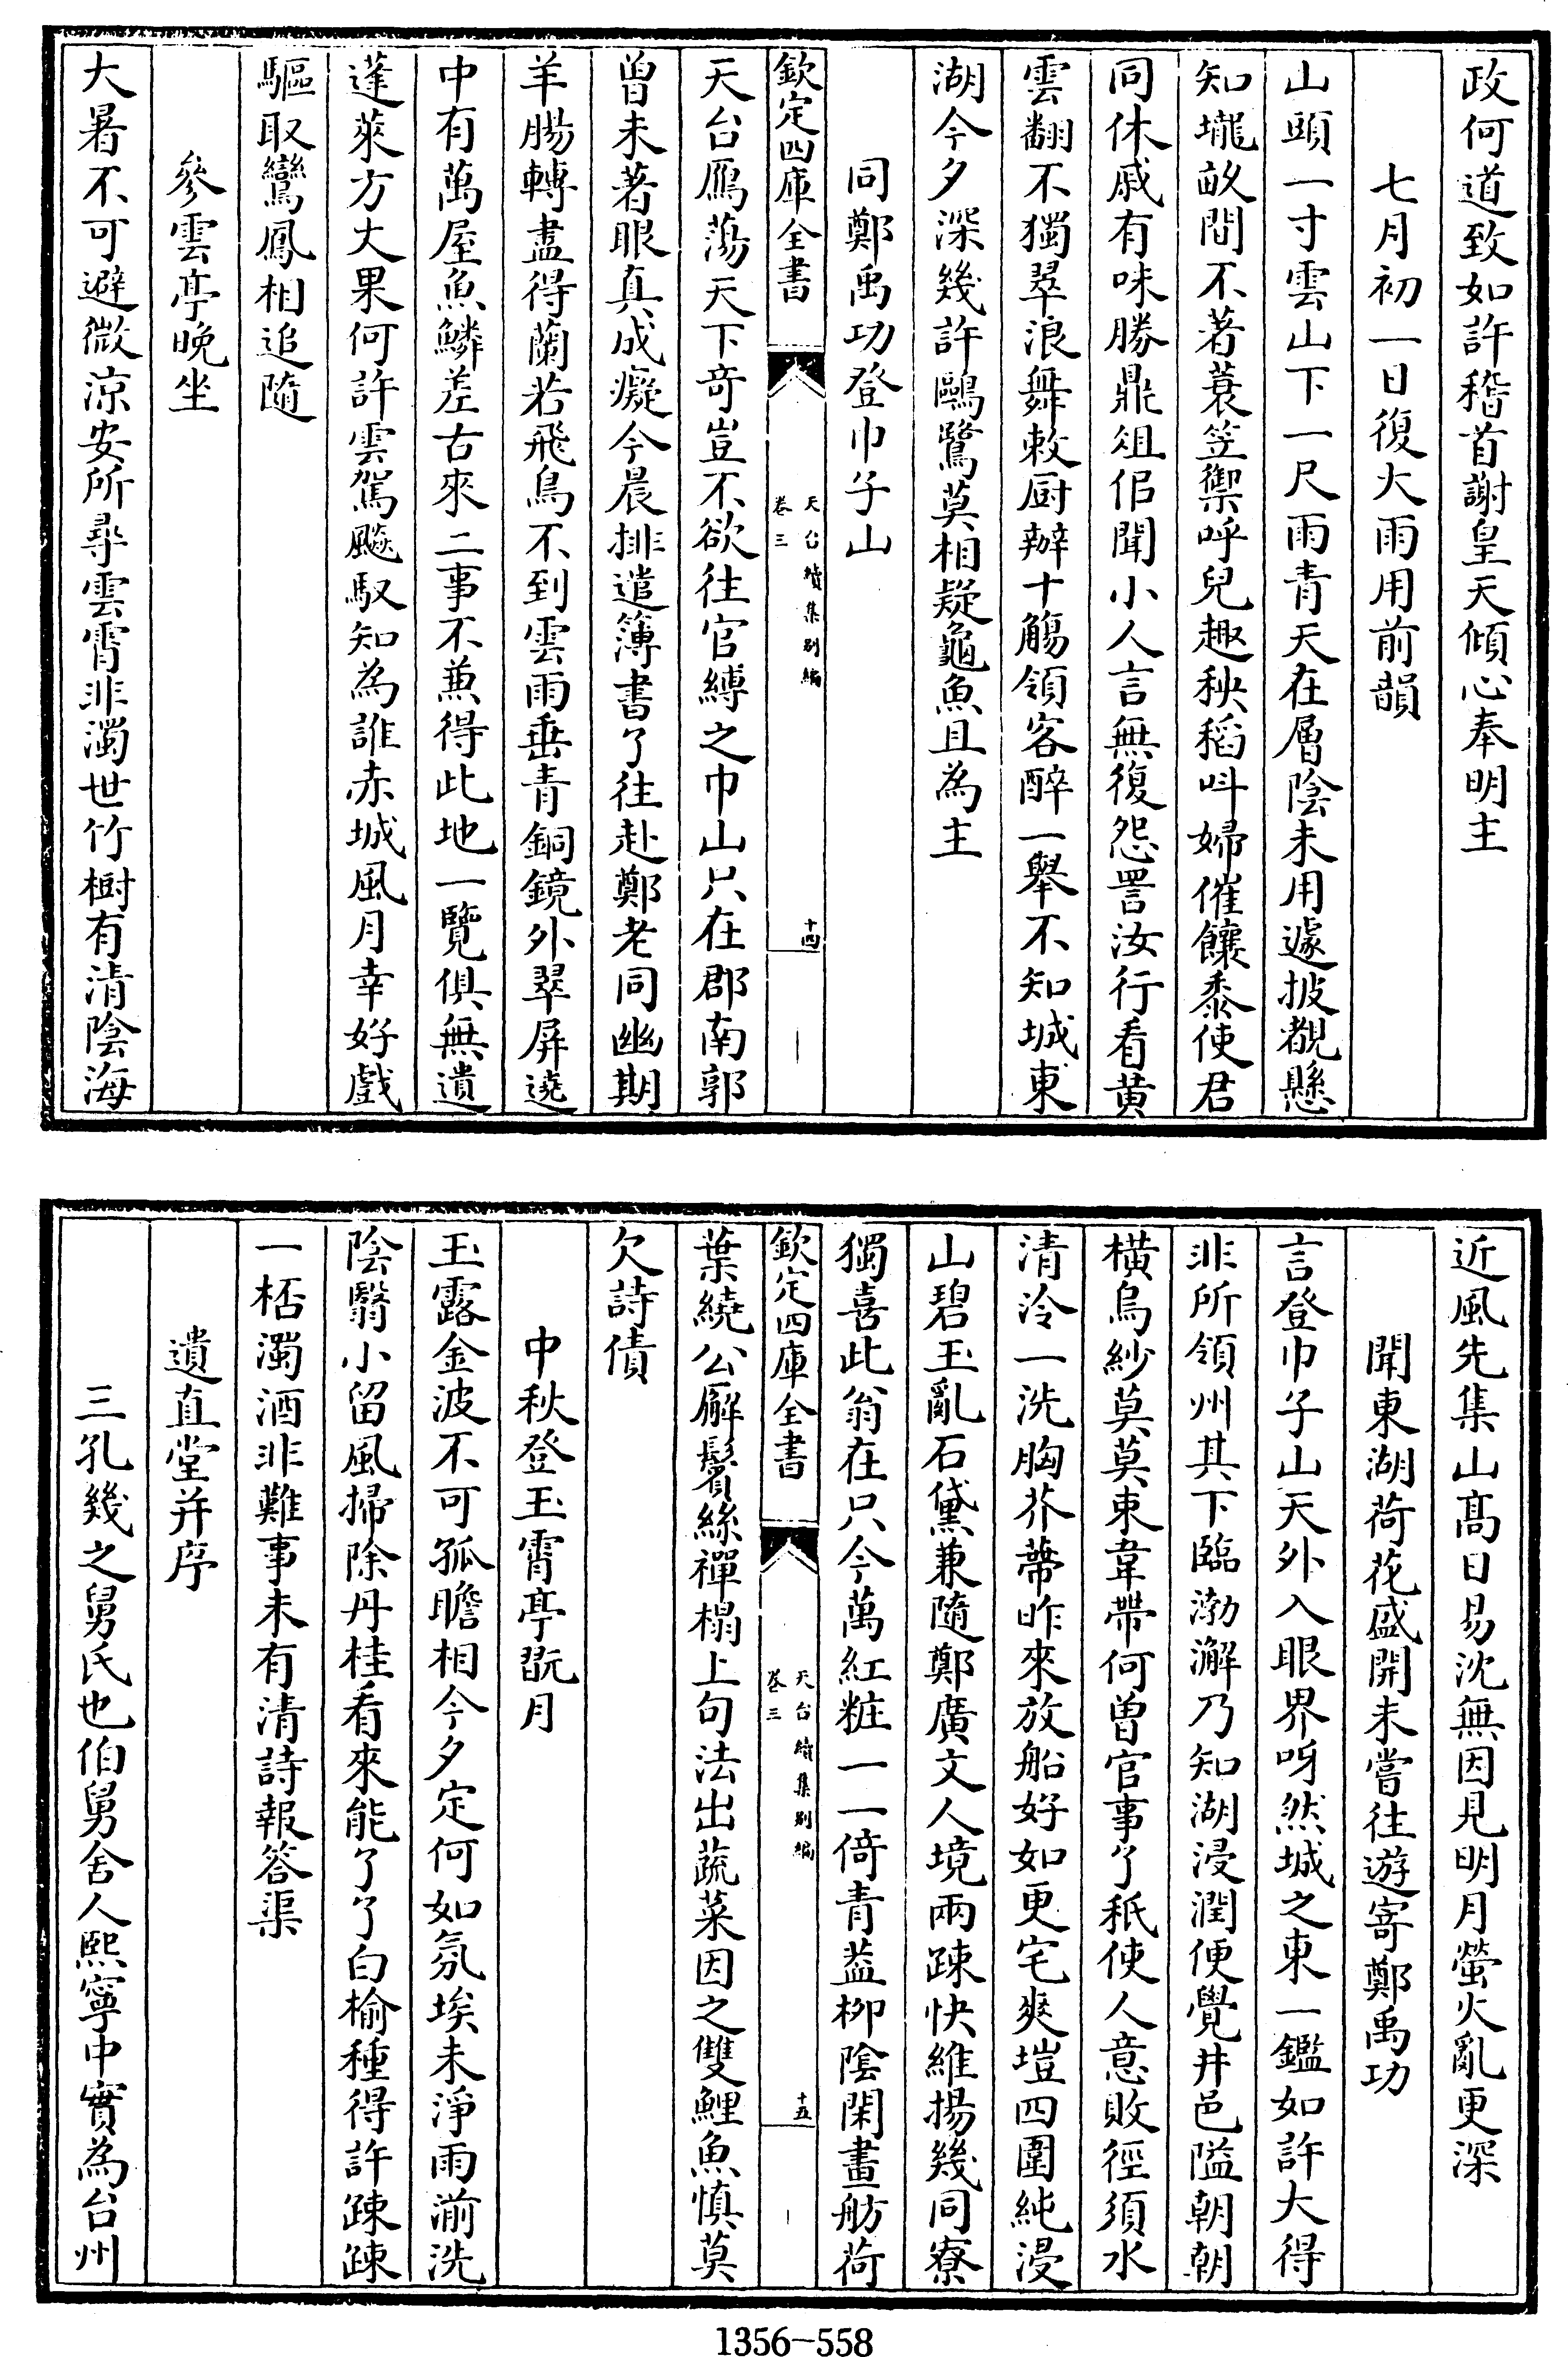 政何道致如許稽首謝皇天傾心奉明主
七月初一日復大雨用前韻
山頭一寸雲山下一尺雨青天在層陰未用遽披覩懸
知壠畝間不著蓑笠禦呼兒趣秧稻呌婦催饟黍使君
同休戚有味勝鼎俎佀聞小人言無復怨詈汝行看黄
雲翻不獨翠浪舞敕厨辦十觴領客醉一舉不知城東
湖今夕深幾許鷗鷺莫相疑龜魚且為主
同鄭禹功登巾子山
欽定四庫全書
天台續集别編
卷三
十四
天台鴈蕩天下竒豈不欲往官縛之巾山只在郡南郭
曾未著眼真成癡今晨排遣簿書了往赴鄭老同幽期
羊腸轉盡得蘭若飛鳥不到雲雨垂青銅鏡外翠屏遶
中有萬屋魚鱗差古來二事不兼得此地一覽俱無遺
蓬萊方丈果何許雲駕飈馭知為誰赤城風月幸好戲
驅取鸞鳳相追隨
參雲亭晚坐
大暑不可避微凉安所尋雲霄非濁世竹樹有清陰海
近風先集山髙日易沈無因見明月螢火亂更深
聞東湖荷花盛開未嘗往遊寄鄭禹功
言登巾子山天外入眼界呀然城之東一鑑如許大得
非所領州其下臨渤澥乃知湖浸潤便覺井邑隘朝朝
橫烏紗莫莫束韋帶何曾官事了秖使人意敗徑須水
清泠一洗胸芥蔕昨來放船好如更宅爽塏四圍純浸
山碧玉亂石黛兼隨鄭廣文人境兩疎快維揚幾同寮
獨喜此翁在只今萬紅粧一一倚青葢栁隂閑畫舫荷
欽定四庫全書
天台續集别編
卷三
十五
葉繞公廨鬢絲禪榻上句法出蔬菜因之雙鯉魚慎莫
欠詩債
中秋登玉霄亭翫月
玉露金波不可孤瞻相今夕定何如氛埃未淨雨湔洗
陰翳小留風掃除丹桂看來能了了白榆種得許疎疎
一桮濁酒非難事未有清詩報答渠
遺直堂并序
三孔幾之舅氏也伯舅舍人熙寧中實為台州
1356-558